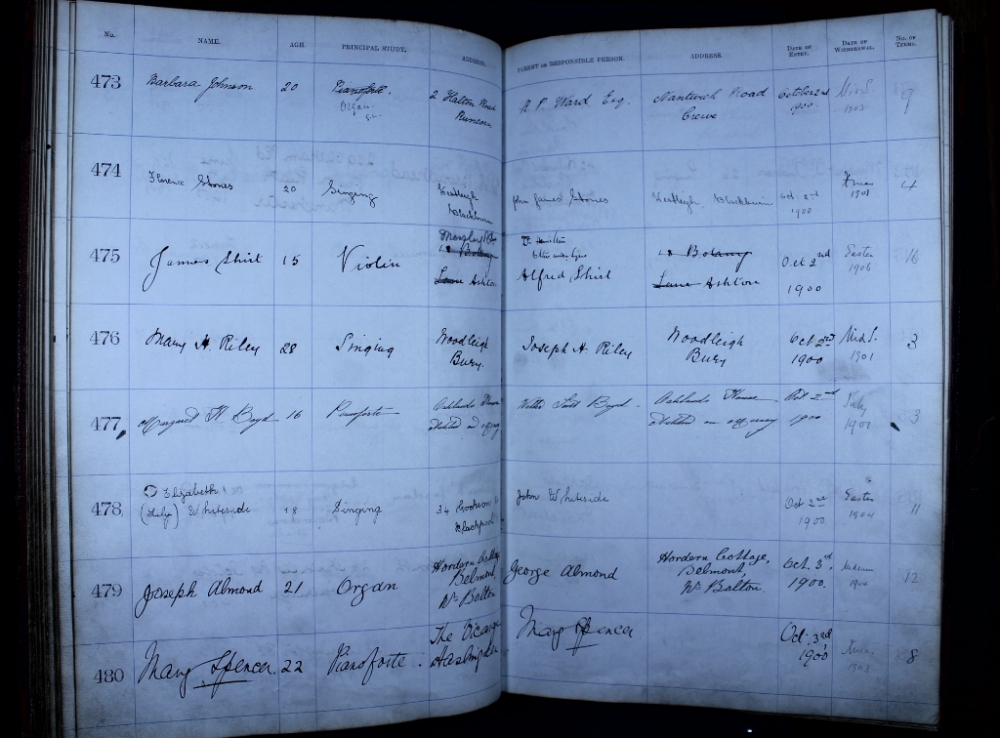 No. NAME. AGE. PRINCIPAL STUDY. ADDRESS. PARENT OR RESPONSIBLE PERSON. ADDRESS DATE OF ENTRY. DATE OF WITHDRAWAL. NO. OF TERMS.
473 Barbara Johnson 20 Pianoforte. 2 Halton Road R. P. Ward Esq. Nantwich Road October 2nd 9
Organ Runcorn Crewe 1900.
474 Florence Stones 20 Singing Westleigh John James Stones Westleigh Blackburn Oct. 2nd Xmas 4
Blackburn 1900 1901
Dr Hamilton
475 James Shirt 15 Violin Botany Alfred Shirt Botany Oct 2nd Easter 16
Lane Ashton Lane Ashton 1900 1906
476 Mary H. Riley 28 Singing Woodleigh Joseph H. Riley Woodleigh Oct 2nd Mids. 3
Bury. Bury. 1900 1901
477 Margaret H Boyd 16 Pianoforte Oaklands House Walter Scott Boyd. Oaklands House Oct 2nd July 3
1900 1901
478 Elizabeth John Whiteside Easter
Whiteside 18 Singing 34 Cookson St Oct 2nd 1904 11
Blackpool 1900
479 Joseph Almond 21 Organ Hordern Cottage George Almond Hordern Cottage, Oct. 3rd 12
Belmont, Belmont, 1900.
Nr Bolton Nr Bolton.
480 Mary Spencer. 22 Pianoforte. The Vicarage Mary Spencer Oct. 3rd Xmas. 8
Haslingden 1900